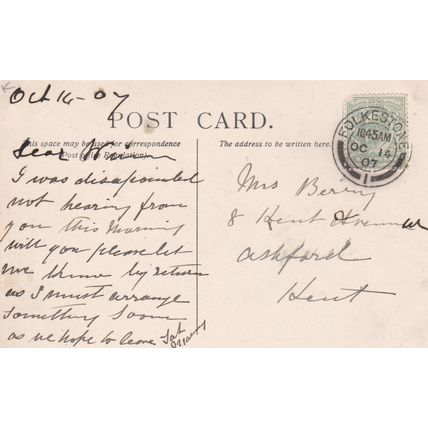 Oct 14-07
POST CARD.
This space may be used for correspondence
(Post Office Regulation).
The address to be written here.
FOLKESTONE
1045AM
OC 14
07
1
Dear
I was disapointed
not hearing from
you this Morning
will you please let
me know by return
as I must arrange
something soon
as we hope to leave Sat
Mrs Berry
8 Kent Avenue
Ashford
Kent